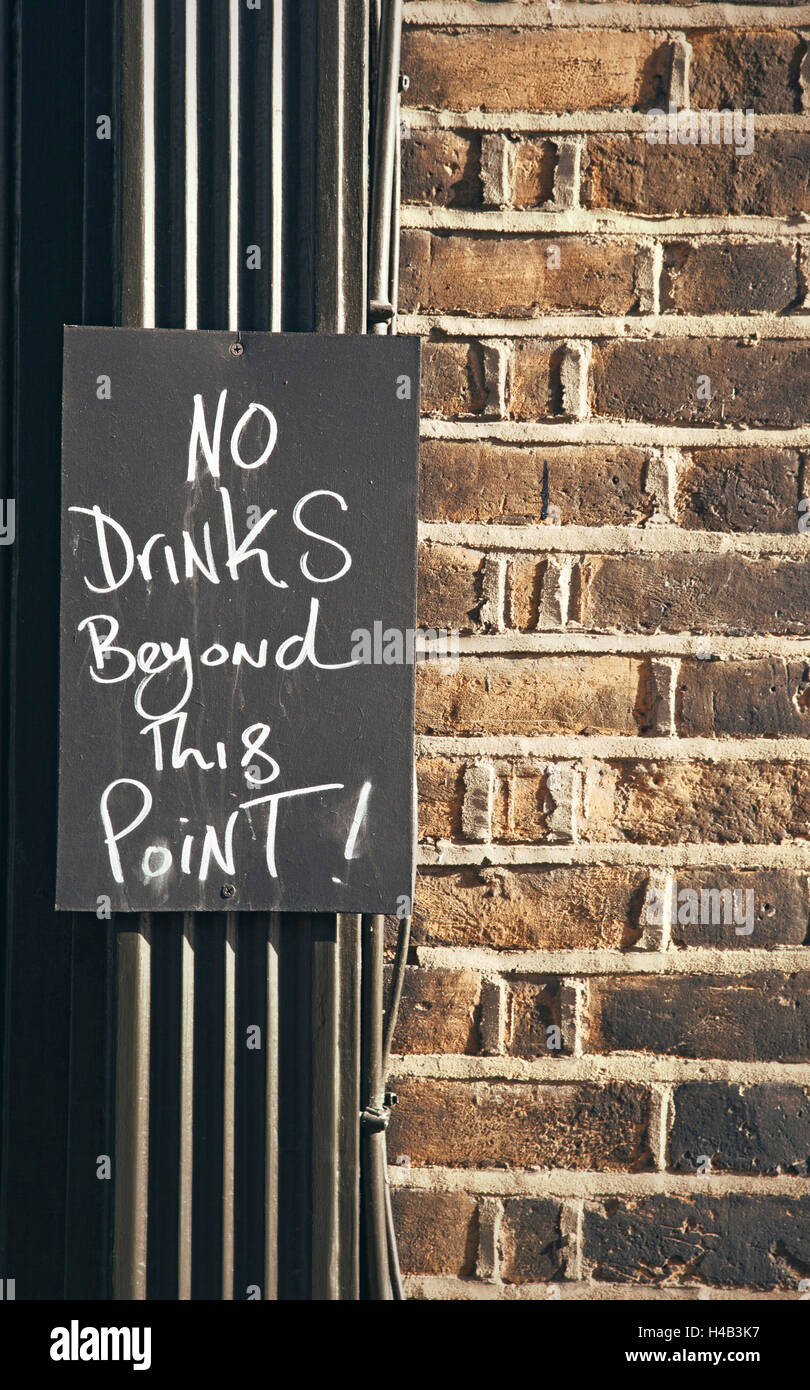 NO
Drinks
Beyond
This
Point!
alamy
Image ID: H4B3K7
www.alamy.com